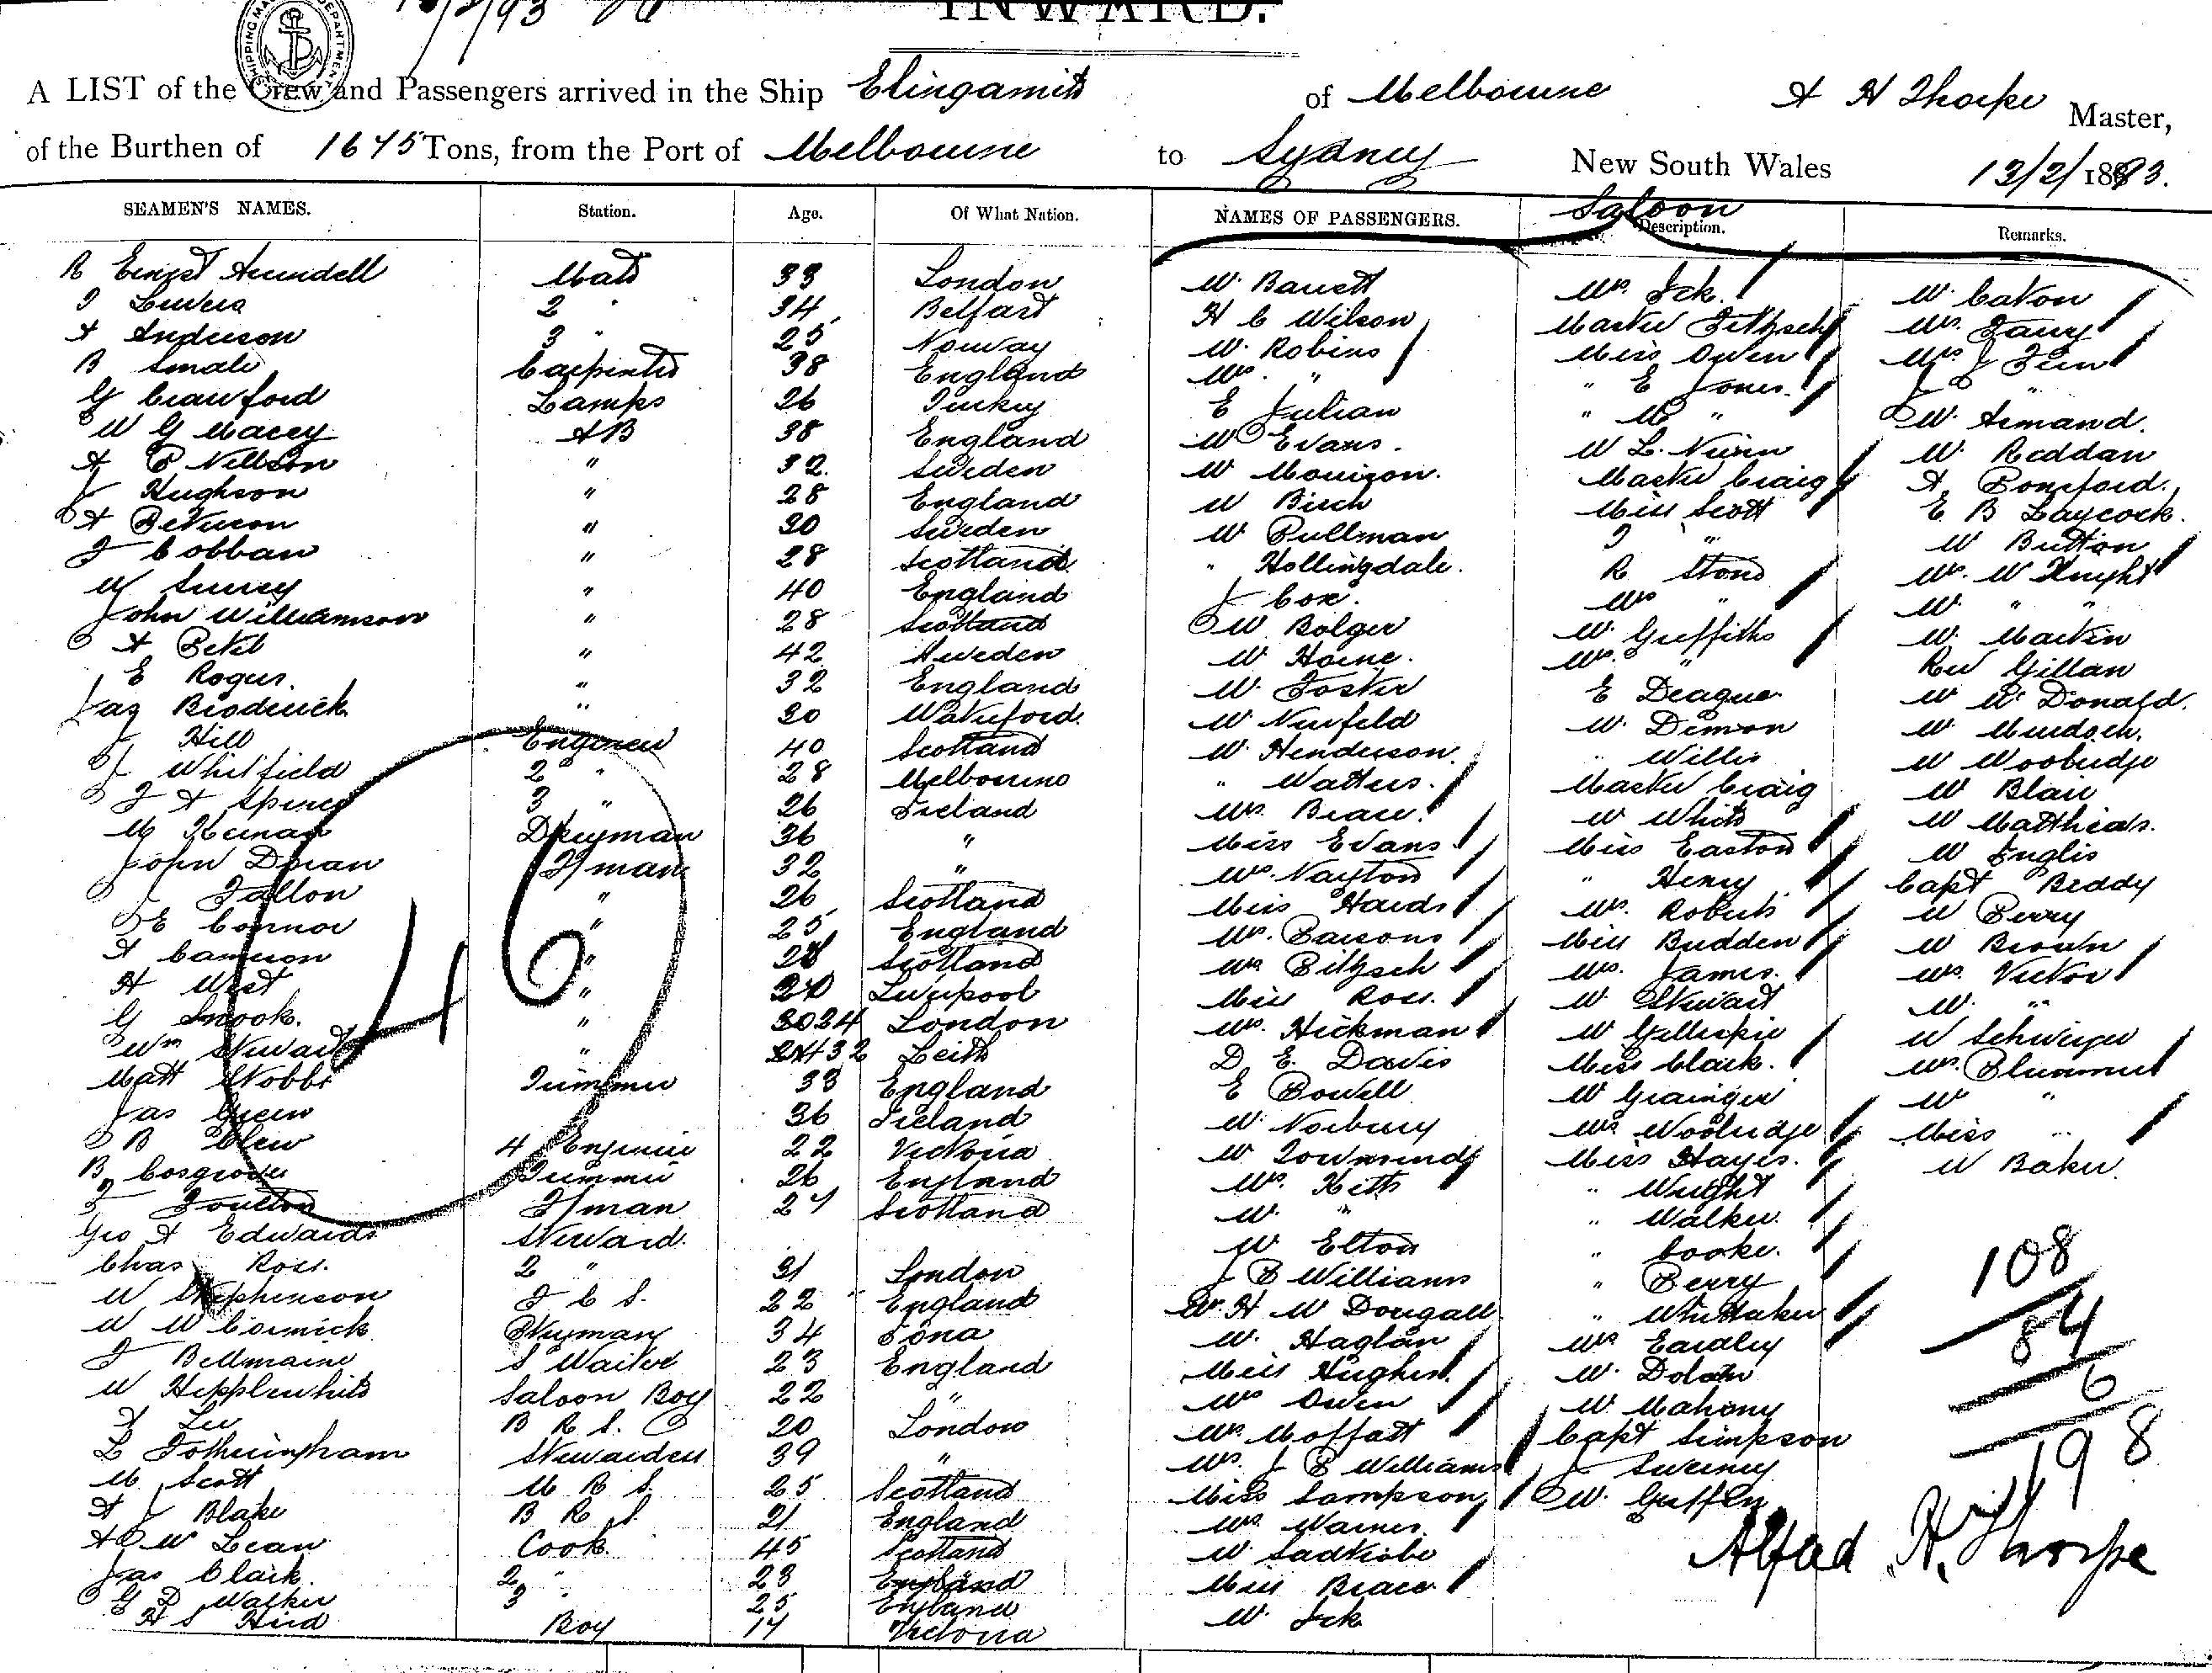 13/2/93
INWARD.
SHIPPING MA DEPARTMENT
A LIST of the Crew and Passengers arrived in the Ship Elingamite of Melbourne A H Thorpe Master,
of the Burthen of 1675 Tons, from the Port of Melbourne to Sydney New South Wales 13/2/1893.
SEAMEN'S NAMES. Station. Age. Of What Nation. NAMES OF PASSENGERS. Saloon Description. Remarks.
R Ernest Arundell Mate 33 London
2 " 34 Belfast
A Anderson 3 " 25 Norway
B Smale Carpenter 38 England
G Crawford Lamps 26 Turkey
W G Macey AB 38 England
A P Nellson " 32 Sweden
J Hughson " 28 England
A Peterson " 30 Sweden
J Cobban " 28 Scotland
W Surrey " 40 England
John Williamson " 28 Scotland
A Petel " 42 Sweden
E Rogers. " 32 England
Jas Broderick " 30 Waterford.
J Hill Engineer 40 Scotland
J Whitfield 2 " 28 Melbourne
J A Spence 3 " 26 Ireland
M Keenan Dkeyman 36 "
John Doran F/man 32 "
J Fallon " 26 Scotland
E Connor " 25 England
A Cameron " 28 Scotland
H West " Liverpool
G Snook. " 34 London
Wm Stewart " 32 Leith
Matt Stobbs Trimmer 33 England
Jas Green 36 Ireland
B Clew 4 Engineer 22 Victoria
B Cosgrove Trimmer 26 England
F Foulton F/man 27 Scotland
Geo A Edwards Steward.
Chas Ross. 2 " 31 London
W Stephenson F C S. 22 England
W McCormick Pkeyman 34 Iona
J Bellmaine S Waiter 23 England
W Hepplewhite Saloon Boy 22 "
A Lee B R S. 20 London
L Fotheringham Stewardess 39 "
M Scott M R S. 25 Scotland
A J Blake B R S. 21 England
A W Lean Cook. 45 Scotland
Jas Clark. 2 " 23 England
G D Walker 3 " 25 England
H S Hird Boy 17 Victoria
Mr. Barrett
H C Wilson
Mr. Robins
Mrs. "
E Julian
Mr Evans.
Mr Morrison.
Mr Birch
Mr Pullman
" Hollingdale.
J Cox.
Mr Bolger
Mr Horne.
Mr. Foster
Mr Neufeld
Mr. Henderson.
" Watters.
Mrs. Brace.
Miss Evans
Mrs. Nayton
Miss Hards
Mrs. Parsons
Mrs Pitzsch
Miss Ross.
Mrs. Hickman
D E Davis
E Powell
Mr. Norbury
Mr Townsend
Mrs. Ketts
Mr. "
Mr Elton
J P Williams
Mr. H McDougall
Mr. Haglan
Miss Hughes.
Mrs Owen
Mrs. Moffatt
Mrs. J P Williams
Miss Sampson
Mrs. Warnes.
Mr. Sadteobe
Miss Brace
Mr. Ick
Mrs. Ick.
Master Pitzsch
Miss Owen
" E Jones.
" M "
Mr L. Nunn
Master Craig
Miss Scott
J "
R Stone
Mrs "
Mr. Griffiths
Mrs. "
E Deague
Mr. Dimon
" Willis
Master Craig
Mr White
Miss Easton
" Henry
Mrs. Roberts
Miss Budden
Mrs. James.
Mr. Stewart
Mr Gillespie
Miss Clark.
Mr Grainger
Mrs Woolridge
Miss Hayes.
" Wright
" Walker.
" Cooke.
" Perry
" Whittaker
Mrs Eardley
Mr. Dolan
Mr. Mahony
Capt Simpson
J Sweeney
Mr. Griffen
Mr. Caton
Mrs. Fanny
Mrs J Fern
J "
Mr. Armand.
Mr. Reddan
A Ponsford.
E B Laycock.
Mr Button
Mrs. W Knight
Mr. " "
Mr. Martin
Rev Gillan
Mr McDonald.
Mr Murdoch.
Mr Woolridge
Mr Blair
Mr Matthias.
Mr Inglis
Capt Beddy
Mr Perry
Mr Brown
Mrs. Victor
Mr. "
Mr Schweiger
Mrs. Plummer
Mr "
Miss "
Mr Baker.
46
108
84
6
198
Alfred H. Thorpe